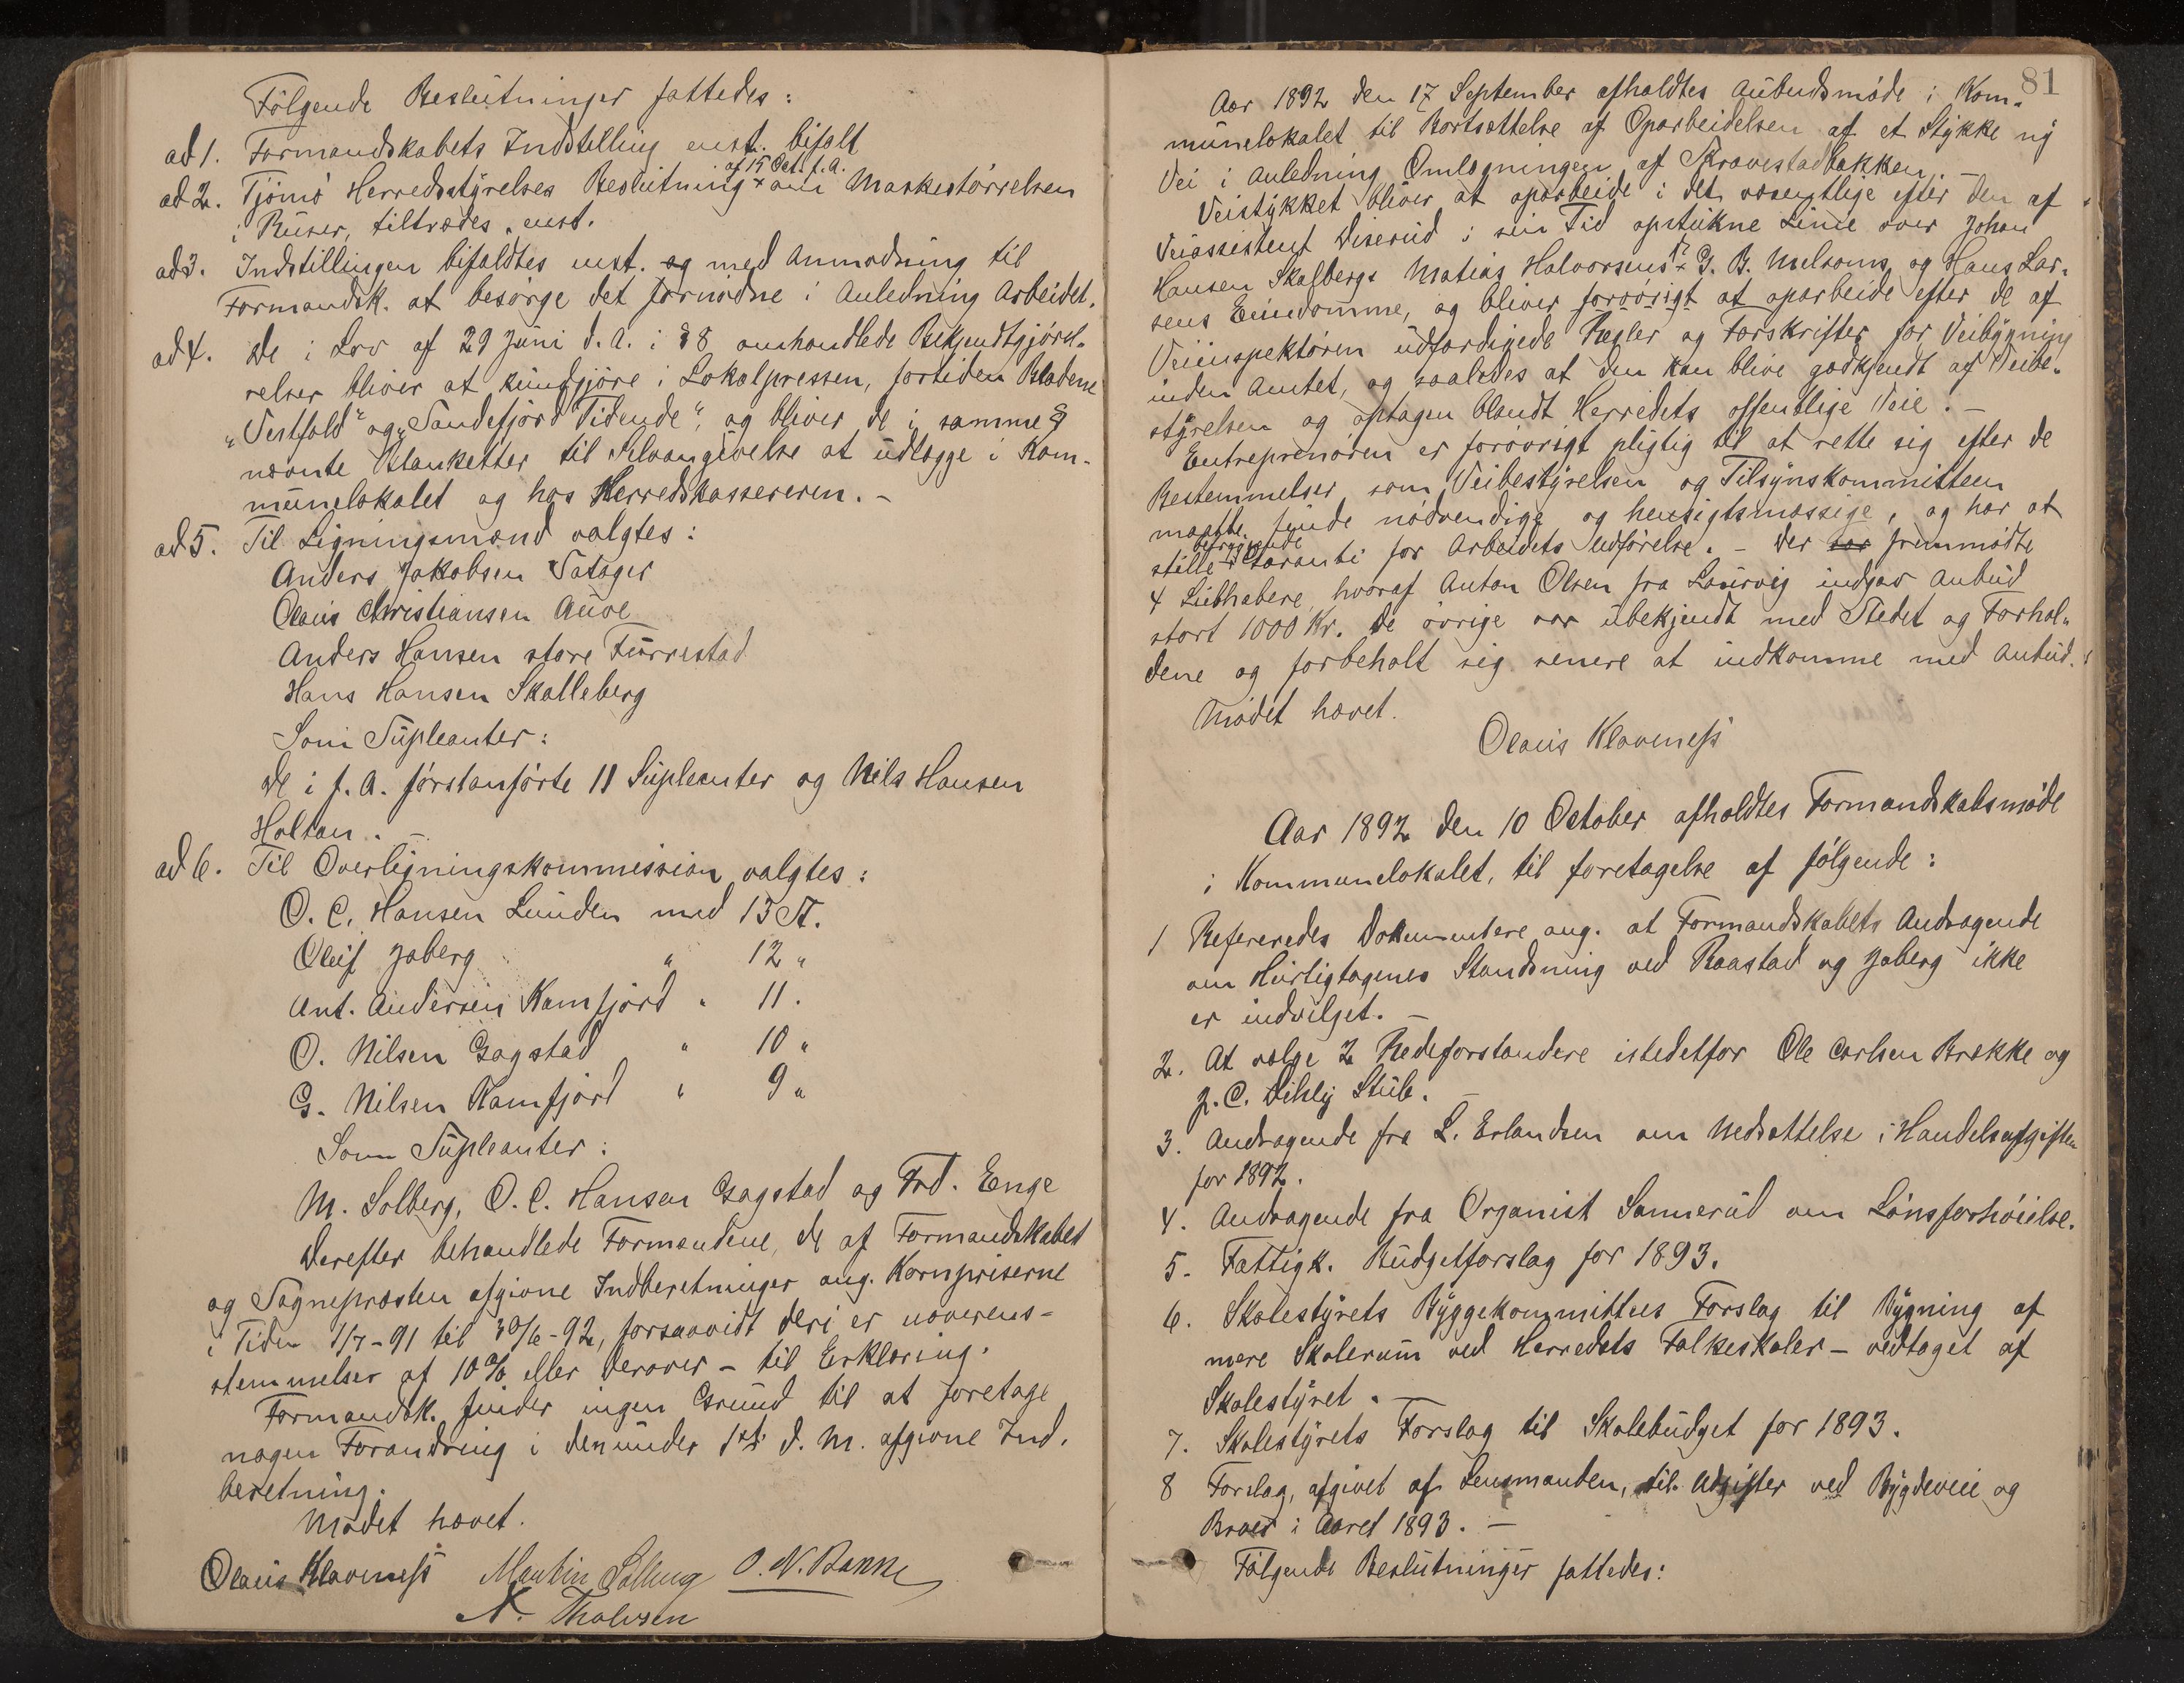 Følgende Beslutninger fattedes:
ad 1. Formandskabets Indstilling enst. bifalt
af 15 Oct. f. A.
ad 2. Tjømø Herredsstyrelses Beslutning × om Maskestørrelsen
i Ruser, tiltrædes enst.
ad 3. Indstillingen bifaldtes enst. og med Anmodning til
Formandsk. at besørge det fornødne i Anledning Arbeidet.
ad 4. De i Lov af 29 Juni d. A. i § 8 omhandlede Bekjendtgjørel-
relser bliver at kundgjøre i Lokalpressen, fortiden Bladene
„Vestfold" og „Sandefjord Tidende", og bliver de i samme §
nævnte Blanketter til Selvangivelse at udlægge i Kom-
munelokalet og hos Herredskassereren. -
ad 5. Til Ligningsmænd valgtes:
Anders Jakobsen Tatager
Olaus Christiansen Auve
Anders Hansen store Furrestad
Hans Hansen Skalleberg
Som Supleanter:
De i f. A. førstanførte 11 Supleanter og Nils Hansen
Holtan. -
ad 6. Til Overligningskommission valgtes:
O. C. Hansen Lunden med 13 St.
Oluf Jaberg " 12 "
Ant. Andersen Kamfjord " 11.
O. Nilsen Gogstad " 10 "
G. Nilsen Kamfjord " 9 "
Som Supleanter:
M. Solberg, O. C. Hansen Gogstad og Frd. Enge
Derefter behandlede Formændene, de af Formandskabet
og Sognepræsten afgivne Indberetninger ang. Kornpriserne
i Tiden 1/7-91 til 30/6-92, forsaavidt deri er uoverens-
stemmelser af 10 % eller derover - til Erklæring.
Formandsk. finder ingen Grund til at foretage
nogen Forandring i den under 1st d. M. afgivne Ind-
beretning.
Mødet hævet.
Olaus Klaveness Martin Solberg O. N. Bakke
N. Tholvsen
81
Aar 1892 den 17 September afholdtes Anbudsmøde i Kom-
munelokalet til Bortsættelse af Oparbeidelsen af et Stykke ny
Vei i Anledning Omlægningen af Skravestadbakken. -
Veistykket bliver at oparbeide i det væsentlige efter den af
Veiassistent Diserud i sin Tid opstukne Linie over Johan
Hansen Skalbergs Matias Halvorsens × G. B. Melsoms og Hans Lar-
sens Eiendomme, og bliver forøvrigt at oparbeide efter de af
Veiinspektøren udfærdigede Regler og Forskrifter for Veibygning
inden Amtet, og saaledes at den kan blive godkjendt af Veibe-
styrelsen og optagen blandt Herredets offentlige Veie. -
Entreprenøren er forøvrigt pligtig til at rette sig efter de
Bestemmelser som Veibestyrelsen og Tilsynskommitteen
maatte finde nødvendige og hensigtsmæssige, og har at
betryggende
stille × Garanti for Arbeidets Udførelse. - Der var fremmødte
4 Liebhabere, hvoraf Anton Olsen fra Laurvig indgav Anbud
stort 1000 Kr. De øvrige var ubekjendt med Stedet og Forhol-
dene og forbeholt sig senere at indkomme med Anbud.
Mødet hævet.
Olaus Klaveness
Aar 1892 den 10 October afholdtes Formandskabsmøde
i Kommunelokalet, til foretagelse af følgende:
1 Refereredes Dokumentere ang. at Formandskabets Andragende
om Hurtigtogenes Standsning ved Raastad og Jaberg ikke
er indvilget. -
2. At vælge 2 Rodeforstandere istedetfor Ole Carlsen Brekke og
J. C. Dihly Stub. -
3. Andragende fra L. Erlandsen om Nedsættelse i Handelsafgiften
for 1892.
4. Andragende fra Organist Sannerud om Lønsforhøielse.
5. Fattigk. Budgetforslag for 1893.
6. Skolestyrets Byggekommittees Forslag til Bygning af
mere Skolerum ved Herredets Folkeskoler - vedtaget af
Skolestyret. -
7. Skolestyrets Forslag til Skolebudget for 1893.
8 Forslag, afgivet af Lensmanden, til Udgifter ved Bygdeveie og
Broer i Aaret 1893. -
Følgende Beslutninger fattedes: